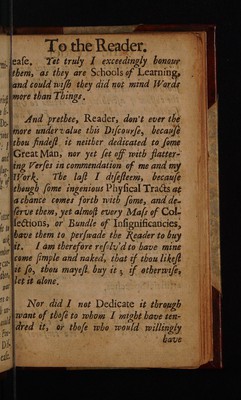 To the Reader.
ease. Yet truly I exceedingly honour
them, as they are Schools of Learning,
and could wiſh they did not mind Words
more than Things.
And prethee, Reader, don't ever the
more undervalue this Diſcourſe, becauſe
thou findeſt it neither dedicated to ſome
Great Man, nor yet ſet off with flatter-
ing Verſes in commendation of me and my
Work. The laſt I diſeſteem, becauſe
though ſome ingenious Phyſical Tracts at
a chance comes forth with ſome, and de-
ſerve them, yet almoſt every Maſs of Col-
lections, or Bundle of Inſignificancies,
have them to perſwade the Reader to buy
it. I am therefore reſolv'd to have mine
come ſimple and naked, that if thou likeſt
it ſo, thou mayeſt buy it; if otherwiſe,
let it alone.
Nor did I not Dedicate it through
want of thoſe to whom I might have ten-
dred it, or thoſe who would willingly
have